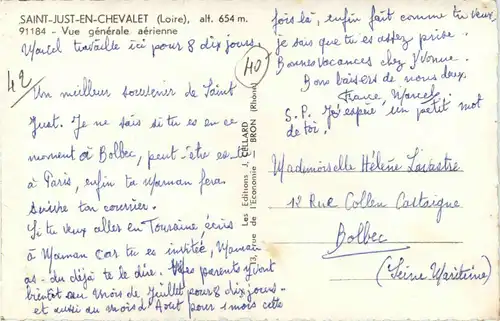 SAINT-JUST-EN-CHEVALET (Loire), alt. 654 m.
91184 - Vue générale aérienne
Marcel travaille ici pour 8 dix jours
42
Un meilleur souvenir de Saint
Just. Je ne sais si tu es en ce
moment à Bolbec, peut-être es-tu
à Paris, enfin ta Maman fera
suivre ton courrier.
Si tu veux aller en Touraine écris
à Maman car tu es invitée, Maman
as-du déjà te le dire. Mes parents y vont
bientôt au mois de Juillet pour 8 dix jours-
et aussi au mois d'Aout pour 1 mois cette
fois là, enfin fait comme tu veux
je sais que tu es assez prise.
Bonnes vacances chez Yvonne.
Bons baisers de nous deux.
France, Marcel
S.P. J'espère, un petit mot
de toi,
40
Les Editions J. CELLARD
313, rue de l'Economie - BRON (Rhône)
Mademoiselle Hélène Lavastre
12 Rue Collen Castaigne
Bolbec
(Seine Maritime)